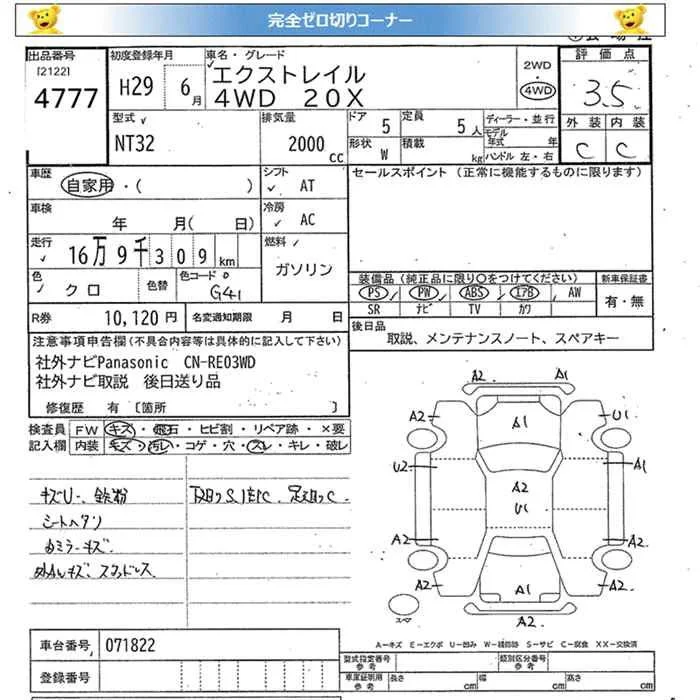 完全ゼロ切りコーナー
出品番号
[2122]
4777
初度登録年月
H29 6月
車名・グレード
エクストレイル
4WD 20X
2WD
・
4WD
評価点
3.5
型式
NT32
排気量
2000
cc
ドア
5
定員
5人
形状
W
積載
kg
ディーラー・並行
モデル年式 年
ハンドル 左・右
外装 内装
C C
車歴
自家用・( )
シフト
AT
セールスポイント (正常に機能するものに限ります)
車検
年 月( 日)
冷房
AC
走行
16万9千309km
燃料
ガソリン
色
クロ
色替
色コード
G41
装備品(純正品に限り○をつけてください)
PS PW ABS エアB AW
SR ナビ TV カワ
新車保証書
有・無
R券
10,120円
名変通知期限 月 日
後日品
取説、メンテナンスノート、スペアキー
注意事項申告欄(不具合内容等は具体的に記入して下さい)
社外ナビPanasonic CN-RE03WD
社外ナビ取説 後日送り品
修復歴 有 [箇所 ]
検査員記入欄
FW キズ・飛石・ヒビ割・リペア跡・×要
内装 キズ・汚レ・コゲ・穴・スレ・キレ・破レ
キズU、鉄粉
シートヘタリ
ミラーキズ
A2 A1
A2 A1 U1
U2 A1
A2
U1
A2 A2
A2 A1 A2
A2
スペア
A―キズ E―エクボ U―凹み W―補修跡 S―サビ C―腐食 XX―交換済
車台番号
071822
登録番号
型式指定番号
参考
類別区分番号
参考
車庫証明用
参考
長さ cm
幅 cm
高さ cm